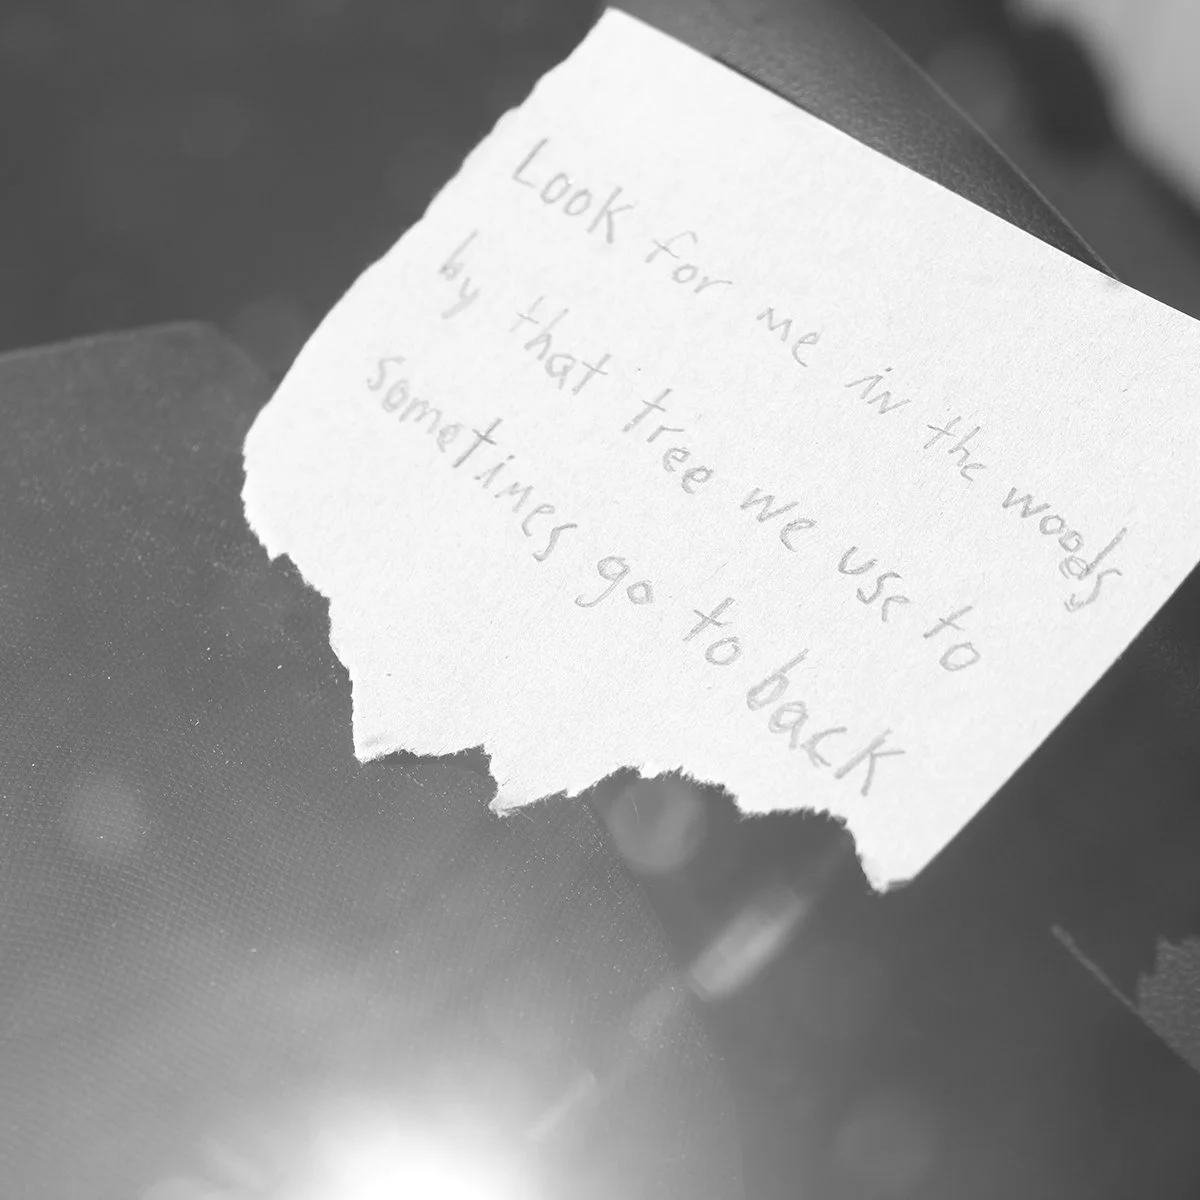 Look for me in the woods
by that tree we use to
sometimes go to back